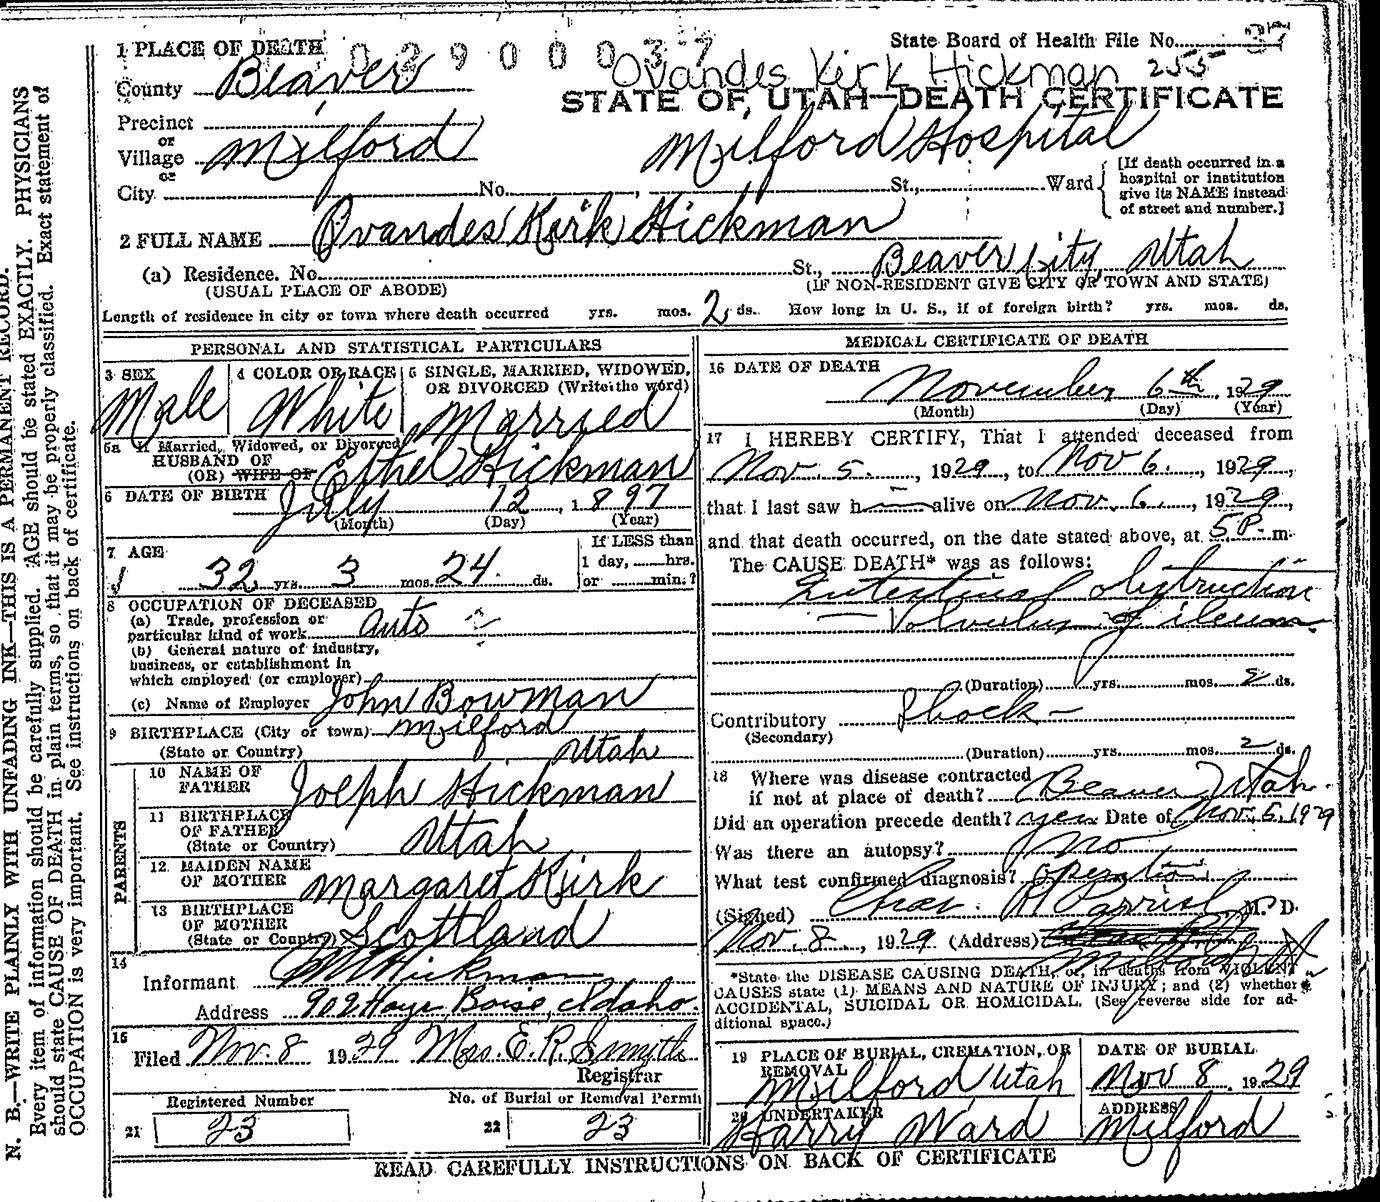 1 PLACE OF DEATH 02900037 State Board of Health File No. 37
Ovandes Kirk Hickman 255
County Beaver STATE OF UTAH—DEATH CERTIFICATE
Precinct
or
Village Milford Milford Hospital
or
City No. , St., Ward
[If death occurred in a
hospital or institution
give its NAME instead
of street and number.]
2 FULL NAME Ovandes Kirk Hickman
(a) Residence. No. St., Beaver City, Utah
(USUAL PLACE OF ABODE) (IF NON-RESIDENT GIVE CITY OR TOWN AND STATE)
Length of residence in city or town where death occurred yrs. mos. 2 ds. How long in U. S., if of foreign birth? yrs. mos. ds.
PERSONAL AND STATISTICAL PARTICULARS
3 SEX 4 COLOR OR RACE 5 SINGLE, MARRIED, WIDOWED,
OR DIVORCED (Write the word)
Male White Married
5a If Married, Widowed, or Divorced
HUSBAND OF
(OR) WIFE OF Ethel Hickman
6 DATE OF BIRTH July 12, 1897
(Month) (Day) (Year)
7 AGE
32 yrs. 3 mos. 24 ds.
If LESS than
1 day, hrs.
or min.?
8 OCCUPATION OF DECEASED
(a) Trade, profession or
particular kind of work Auto
(b) General nature of industry,
business, or establishment in
which employed (or employer)
(c) Name of Employer John Bowman
9 BIRTHPLACE (City or town) Milford
(State or Country) Utah
PARENTS
10 NAME OF
FATHER Joseph Hickman
11 BIRTHPLACE
OF FATHER
(State or Country) Utah
12 MAIDEN NAME
OF MOTHER Margaret Kirk
13 BIRTHPLACE
OF MOTHER
(State or Country) Scottland
14
Informant Hickman
Address 902 Hays Boise, Idaho
15
Filed Nov. 8 1929 Mrs. E. R. Smyth
Registrar
Registered Number No. of Burial or Removal Permit
21 23 22 23
MEDICAL CERTIFICATE OF DEATH
16 DATE OF DEATH
November 6th, 1929
(Month) (Day) (Year)
17 I HEREBY CERTIFY, That I attended deceased from
Nov. 5, 1929, to Nov 6, 1929,
that I last saw h alive on Nov. 6, 1929,
and that death occurred, on the date stated above, at 5 P. m.
The CAUSE DEATH* was as follows:
Intestinal obstruction
— Volvulus of ileum.
(Duration) yrs. mos. 2 ds.
Contributory Shock —
(Secondary)
(Duration) yrs. mos. 2 ds.
18 Where was disease contracted
if not at place of death? Beaver Utah.
Did an operation precede death? yes Date of Nov. 5, 1929
Was there an autopsy? no
What test confirmed diagnosis? Operation
(Signed) Chas. M. D.
Nov. 8, 1929 (Address) Milford
*State the DISEASE CAUSING DEATH, or, in deaths from VIOLENT
CAUSES state (1) MEANS AND NATURE OF INJURY; and (2) whether
ACCIDENTAL, SUICIDAL OR HOMICIDAL. (See reverse side for ad-
ditional space.)
19 PLACE OF BURIAL, CREMATION, OR
REMOVAL
Milford Utah
DATE OF BURIAL
Nov 8 1929
20 UNDERTAKER
Harry Ward
ADDRESS
Milford
READ CAREFULLY INSTRUCTIONS ON BACK OF CERTIFICATE
N. B.—WRITE PLAINLY WITH UNFADING INK—THIS IS A PERMANENT RECORD.
Every item of information should be carefully supplied. AGE should be stated EXACTLY. PHYSICIANS
should state CAUSE OF DEATH in plain terms, so that it may be properly classified. Exact statement of
OCCUPATION is very important. See instructions on back of certificate.